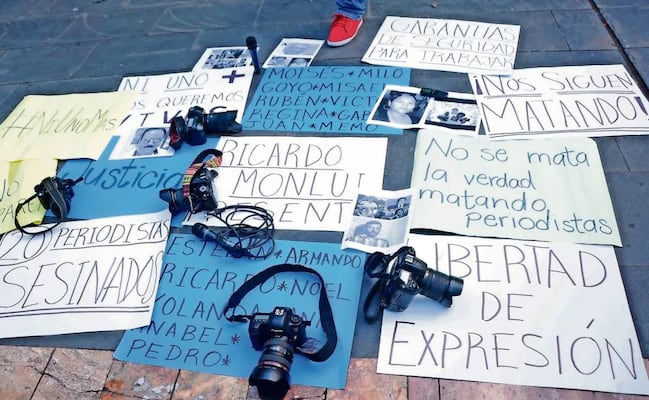 GARANTIAS
DE SEGURIDAD
PARA TRABAJAR
NI UNO +
OS QUEREMOS
MOISES * MILO
GOYO * MISAE
RUBÉN * VICT
REGINA * GAB
JUAN * MEM
¡NOS SIGUEN
MATANDO!
#NiUnoMas
Justicia
RICARDO
MONLUÍ
ENT
No se mata
la verdad
matando
periodistas
20 PERIODISTAS
SESINADOS
ESTEBAN * ARMANDO
RICARDO * NOEL
YOLAN
ANABEL *
PEDRO *
LIBERTAD
DE
EXPRESIÓN